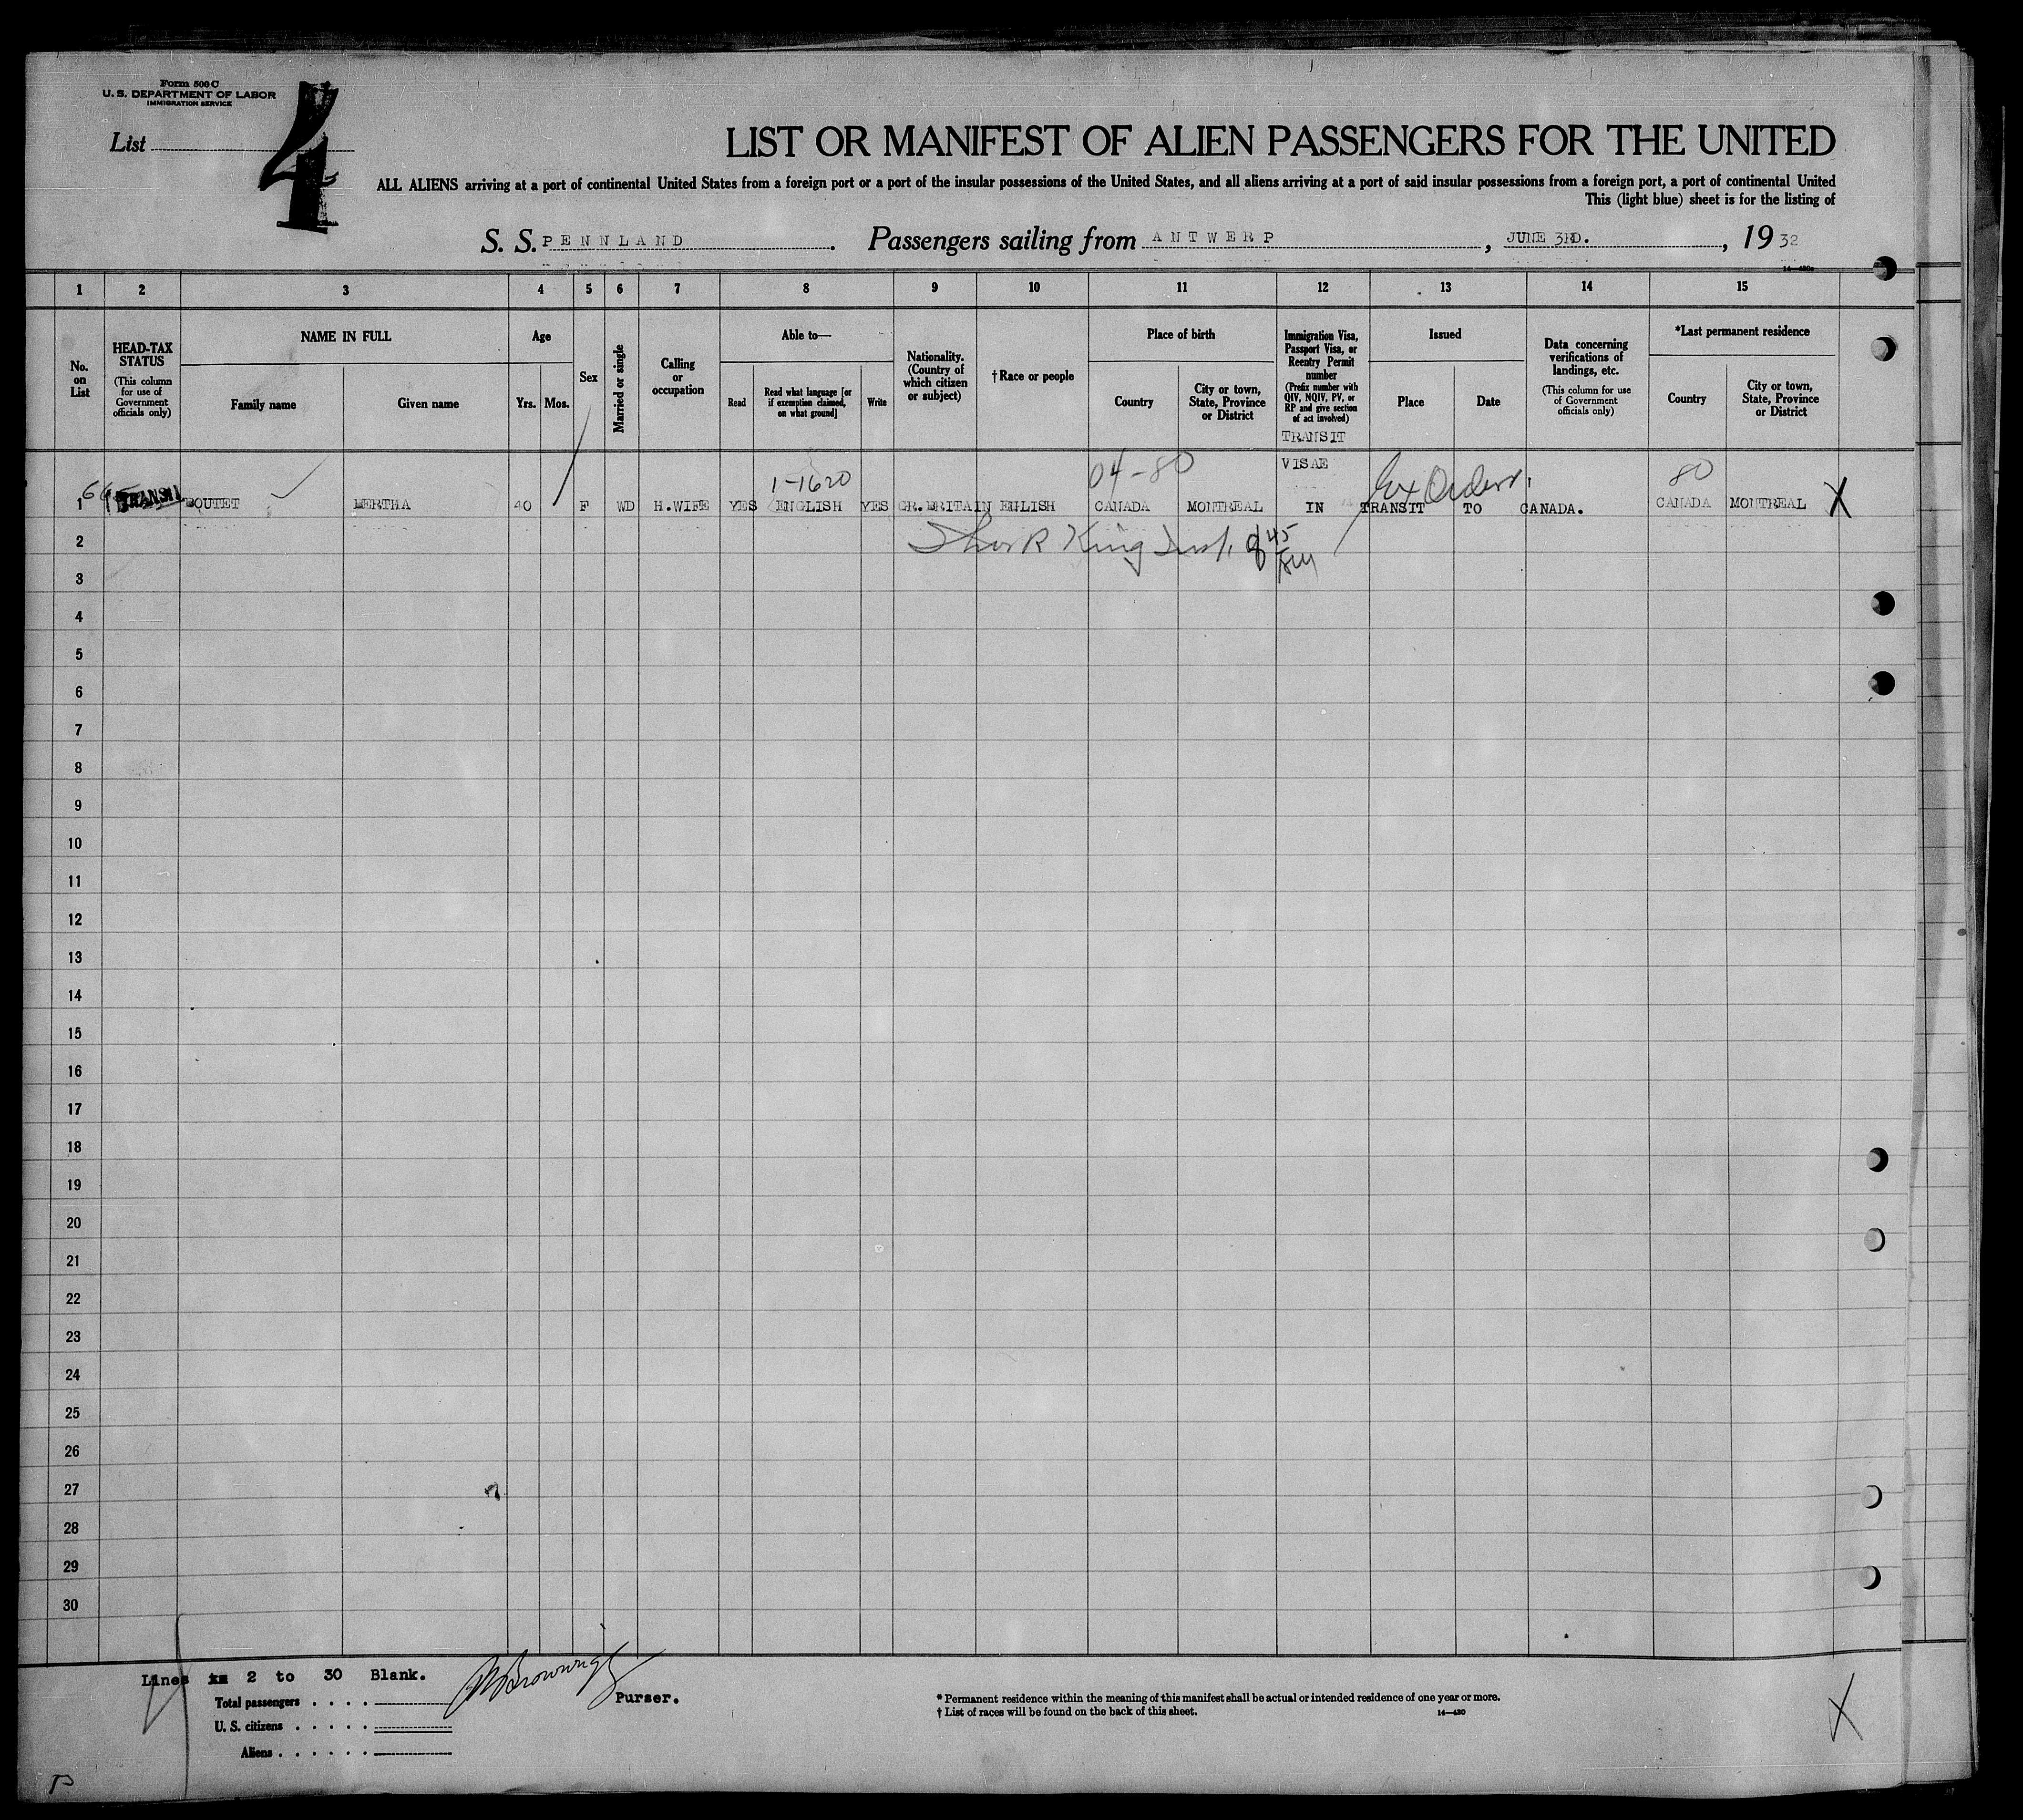 Form 500 C
U. S. DEPARTMENT OF LABOR
IMMIGRATION SERVICE
List 4
LIST OR MANIFEST OF ALIEN PASSENGERS FOR THE UNITED
ALL ALIENS arriving at a port of continental United States from a foreign port or a port of the insular possessions of the United States, and all aliens arriving at a port of said insular possessions from a foreign port, a port of continental United
This (light blue) sheet is for the listing of
S. S. PENNLAND. Passengers sailing from ANTWERP, JUNE 3RD., 1932
1 2 3 4 5 6 7 8 9 10 11 12 13 14 15
No. on List
HEAD-TAX STATUS (This column for use of Government officials only)
NAME IN FULL
Family name
Given name
Age
Yrs. Mos.
Sex
Married or single
Calling or occupation
Able to—
Read
Read what language [or if exemption claimed, on what ground]
Write
Nationality. (Country of which citizen or subject)
†Race or people
Place of birth
Country
City or town, State, Province or District
Immigration Visa, Passport Visa, or Reentry Permit number (Prefix number with QIV, NQIV, PV, or RP and give section of act involved)
Issued
Place
Date
Data concerning verifications of landings, etc. (This column for use of Government officials only)
*Last permanent residence
Country
City or town, State, Province or District
TRANSIT
1-1620 04-80 VISAE Ex Orders. 80
1 TRANSIT BOUTET BERTHA 40 F WD H.WIFE YES ENGLISH YES GR.BRITAIN ENLISH CANADA MONTREAL IN TRANSIT TO CANADA. CANADA MONTREAL X
2 King Insp. 8 45
3
4
5
6
7
8
9
10
11
12
13
14
15
16
17
18
19
20
21
22
23
24
25
26
27
28
29
30
Lines 2 to 30 Blank.
Purser.
Total passengers . . . .
U. S. citizens . . . . .
Aliens . . . . . .
* Permanent residence within the meaning of this manifest shall be actual or intended residence of one year or more.
† List of races will be found on the back of this sheet. 14—430
X